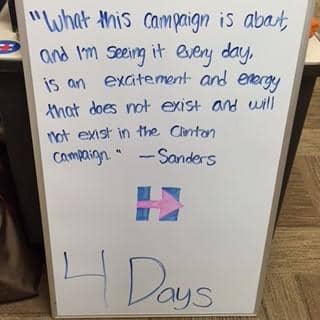 "What this campaign is about,
and I'm seeing it every day,
is an excitement and energy
that does not exist and will
not exist in the Clinton
campaign." — Sanders
H
4 Days